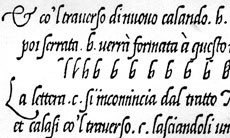 & co'l trauerso di nuouo calando. b.
poi serrata. b. uerrà formata à questo
l l l b b b b b b b b
La lettera. c. si incomincia dal tratto
et calasi co'l trauerso. c. lasciandoli un